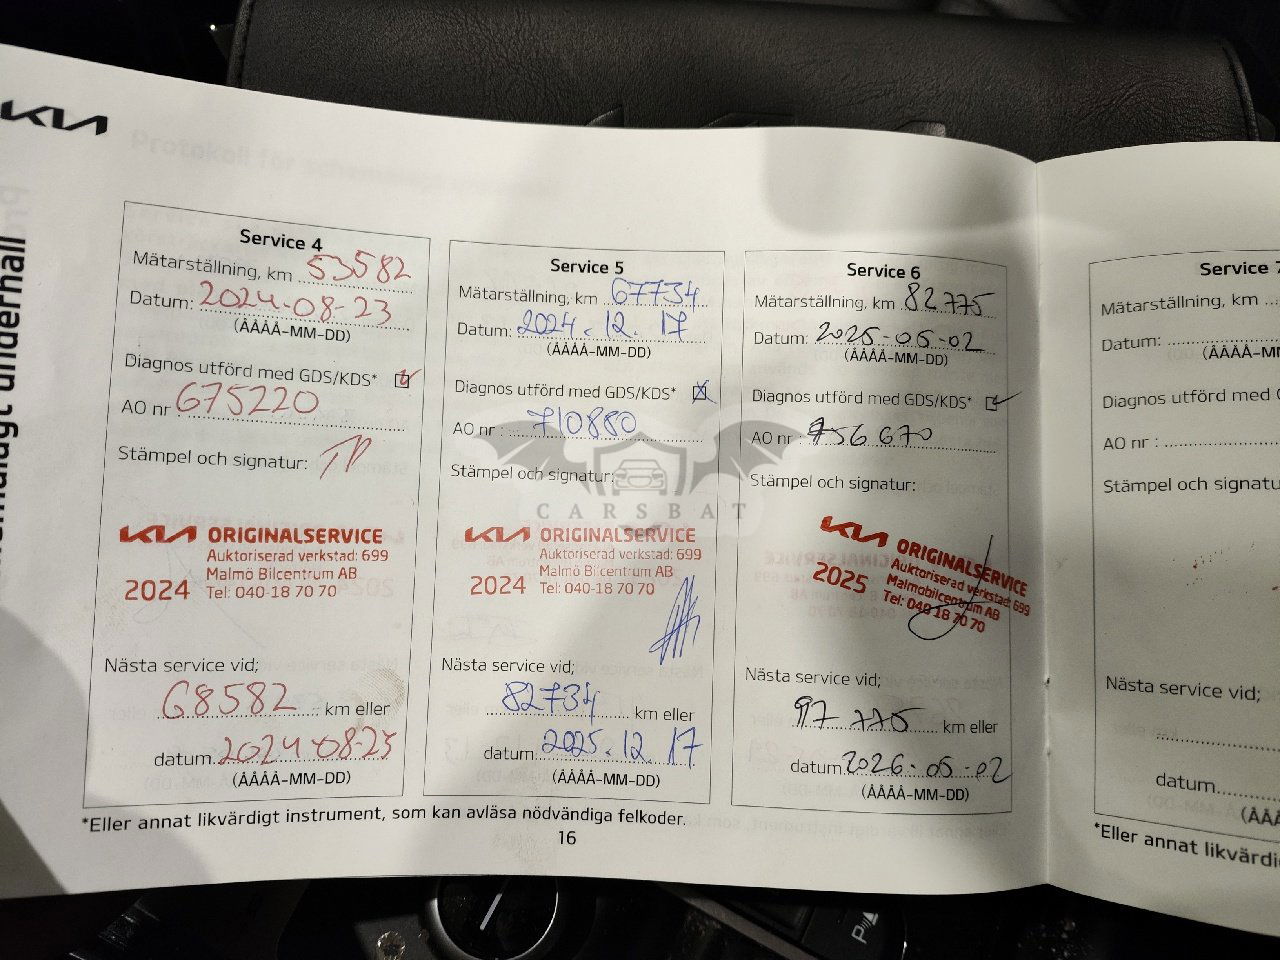 KIA
Service 4
Mätarställning, km 53582
Datum: 2024-08-23
(ÅÅÅÅ-MM-DD)
Diagnos utförd med GDS/KDS*
AO nr 675220
Stämpel och signatur:
KIA ORIGINALSERVICE
Auktoriserad verkstad: 699
Malmö Bilcentrum AB
2024 Tel: 040-18 70 70
Nästa service vid;
68582 km eller
datum. 2024-08-23
(ÅÅÅÅ-MM-DD)
Service 5
Mätarställning, km 67734
Datum: 2024.12.17
(ÅÅÅÅ-MM-DD)
Diagnos utförd med GDS/KDS*
AO nr : 710880
Stämpel och signatur:
KIA ORIGINALSERVICE
Auktoriserad verkstad: 699
Malmö Bilcentrum AB
2024 Tel: 040-18 70 70
Nästa service vid;
82734 km eller
datum. 2025.12.17
(ÅÅÅÅ-MM-DD)
Service 6
Mätarställning, km 82775
Datum: 2025-05-02
(ÅÅÅÅ-MM-DD)
Diagnos utförd med GDS/KDS*
AO nr : 756670
Stämpel och signatur:
KIA ORIGINALSERVICE
Auktoriserad verkstad: 699
Malmobilcentrum AB
2025 Tel: 040 18 70 70
Nästa service vid;
97 775 km eller
datum. 2026-05-02
(ÅÅÅÅ-MM-DD)
*Eller annat likvärdigt instrument, som kan avläsa nödvändiga felkoder.
16
Service 7
Mätarställning, km
Datum:
(ÅÅÅÅ-MM-
Diagnos utförd med
AO nr :
Stämpel och signatu
Nästa service vid;
datum.
(ÅÅ
*Eller annat likvärdi
CARSBAT
underhåll